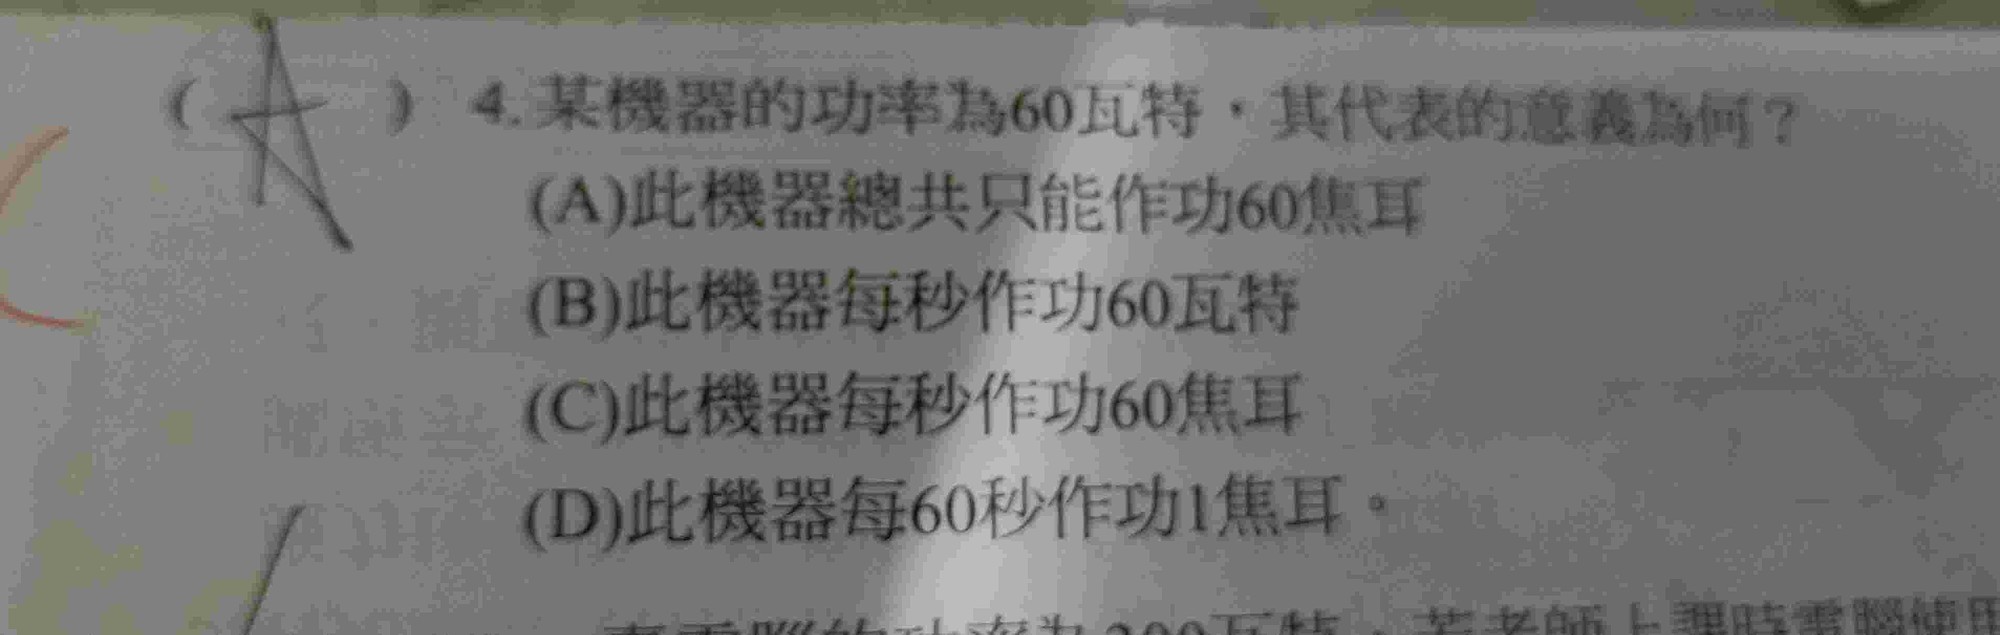 ( A ) 4.某機器的功率為60瓦特，其代表的意義為何？
(A)此機器總共只能作功60焦耳
(B)此機器每秒作功60瓦特
(C)此機器每秒作功60焦耳
(D)此機器每60秒作功1焦耳。
的功率為200瓦特，若老師上課時電腦使用